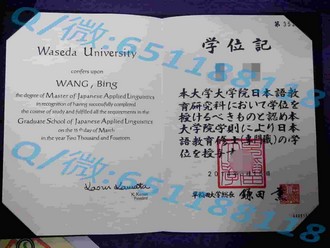 Waseda University
confers upon
WANG, Bing
the degree of Master of Japanese Applied Linguistics
in recognition of having successfully completed
the course of study and fulfilled all the requirements in the
Graduate School of Japanese Applied Linguistics
on the 15 day of March
in the year Two Thousand and Fourteen
Kaoru Kamata
President
学位記
本大学大学院日本語教
育研究科において学位を
授けるべきものと認め本
大学院学則により日本
語教育修士の学
位を授与す
早稲田大学総長 鎌田薫
Q/微:651188118